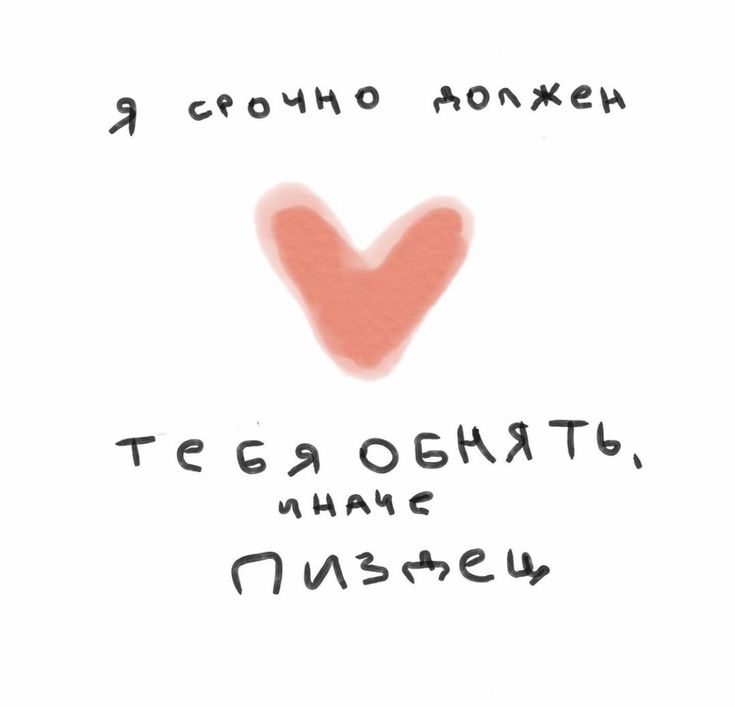 я срочно должен
тебя обнять,
иначе
пиздец